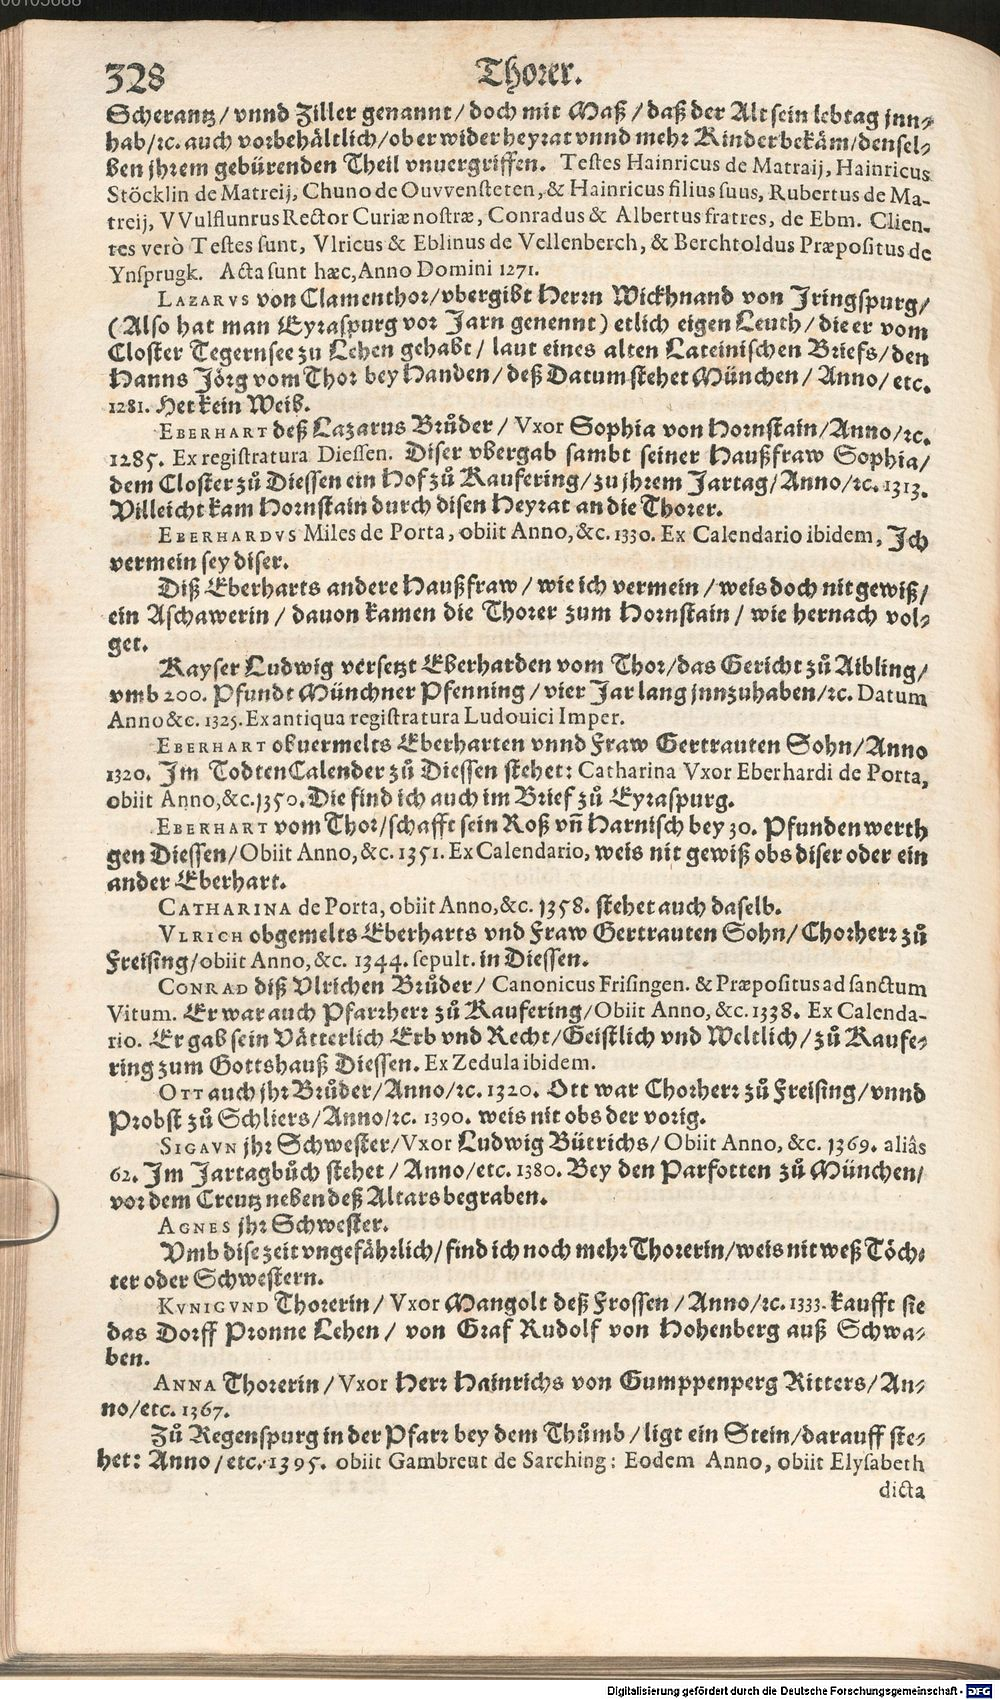 328 Thorer.
Scherantz/ vnnd Ziller genannt/ doch mit Maß/ daß der Alt sein lebtag jnn-
hab/ꝛc. auch vorbehältlich/ ob er wider heyrat vnnd mehr Kinder bekäm/ densel-
ben jhrem gebürenden Theil vnuergriffen. Testes Hainricus de Matraij, Hainricus
Stöcklin de Matreij, Chuno de Ouvvensteten, & Hainricus filius suus, Rubertus de Ma-
treij, VVulflunrus Rector Curiæ nostræ, Conradus & Albertus fratres, de Ebm. Clien-
tes verò Testes sunt, Vlricus & Eblinus de Vellenberch, & Berchtoldus Præpositus de
Ynsprugk. Acta sunt hæc, Anno Domini 1271.
LAZARVS von Clamenthor/ vbergibt Herrn Wickhnand von Jringspurg/
(Also hat man Eyraspurg vor Jarn genennt) etlich eigen Leuth/ die er vom
Closter Tegernsee zu Lehen gehabt/ laut eines alten Lateinischen Briefs/ den
Hanns Jörg vom Thor bey Handen/ deß Datum stehet München/ Anno/ etc.
1281. Het kein Weib.
EBERHART deß Lazarus Brůder/ Vxor Sophia von Hornstain/ Anno/ꝛc.
1285. Ex registratura Diessen. Diser vbergab sambt seiner Haußfraw Sophia/
dem Closter zů Diessen ein Hof zů Kaufering/ zu jhrem Jartag/ Anno/ꝛc. 1313.
Villeicht kam Hornstain durch disen Heyrat an die Thorer.
EBERHARDVS Miles de Porta, obiit Anno, &c. 1330. Ex Calendario ibidem, Jch
vermein sey diser.
Diß Eberharts andere Haußfraw/ wie ich vermein/ weis doch nit gewiß/
ein Aschawerin/ dauon kamen die Thorer zum Hornstain/ wie hernach vol-
get.
Kayser Ludwig versetzt Eberharden vom Thor/ das Gericht zů Aibling/
vmb 200. Pfundt Münchner Pfenning/ vier Jar lang jnnzuhaben/ꝛc. Datum
Anno &c. 1325. Ex antiqua registratura Ludouici Imper.
EBERHART obuermelts Eberharten vnnd Fraw Gertrauten Sohn/ Anno
1320. Jm TodtenCalender zů Diessen stehet: Catharina Vxor Eberhardi de Porta,
obiit Anno, &c. 1350. Die find ich auch im Brief zů Eyraspurg.
EBERHART vom Thor/ schafft sein Roß vñ Harnisch bey 30. Pfunden werth
gen Diessen/ Obiit Anno, &c. 1351. Ex Calendario, weis nit gewiß obs diser oder ein
ander Eberhart.
CATHARINA de Porta, obiit Anno, &c. 1358. stehet auch daselb.
VLRICH obgemelts Eberharts vnd Fraw Gertrauten Sohn/ Chorherr zů
Freising/ obiit Anno, &c. 1344. sepult. in Diessen.
CONRAD diß Vlrichen Brůder/ Canonicus Frisingen. & Præpositus ad sanctum
Vitum. Er war auch Pfarrherr zů Kaufering/ Obiit Anno, &c. 1338. Ex Calenda-
rio. Er gab sein Vätterlich Erb vnd Recht/ Geistlich vnd Weltlich/ zů Kaufe-
ring zum Gottshauß Diessen. Ex Zedula ibidem.
OTT auch jhr Brůder/ Anno/ꝛc. 1320. Ott war Chorherr zů Freising/ vnnd
Probst zů Schliers/ Anno/ꝛc. 1390. weis nit obs der vorig.
SIGAVN jhr Schwester/ Vxor Ludwig Bütrichs/ Obiit Anno, &c. 1369. aliâs
62. Jm Jartagbůch stehet/ Anno/ etc. 1380. Bey den Parfotten zů München/
vor dem Creutz neben deß Altars begraben.
AGNES jhr Schwester.
Vmb dise zeit vngefährlich/ find ich noch mehr Thorerin/ weis nit weß Töch-
ter oder Schwestern.
KVNIGVND Thorerin/ Vxor Mangolt deß Frossen/ Anno/ꝛc. 1333. kaufft sie
das Dorff Pronne Lehen/ von Graf Rudolf von Hohenberg auß Schwa-
ben.
ANNA Thorerin/ Vxor Herr Hainrichs von Gumppenperg Ritters/ An-
no/ etc. 1367.
Zů Regenspurg in der Pfarr bey dem Thůmb/ ligt ein Stein/ darauff ste-
het: Anno/ etc. 1395. obiit Gambreut de Sarching: Eodem Anno, obiit Elysabeth
dicta
Digitalisierung gefördert durch die Deutsche Forschungsgemeinschaft - DFG